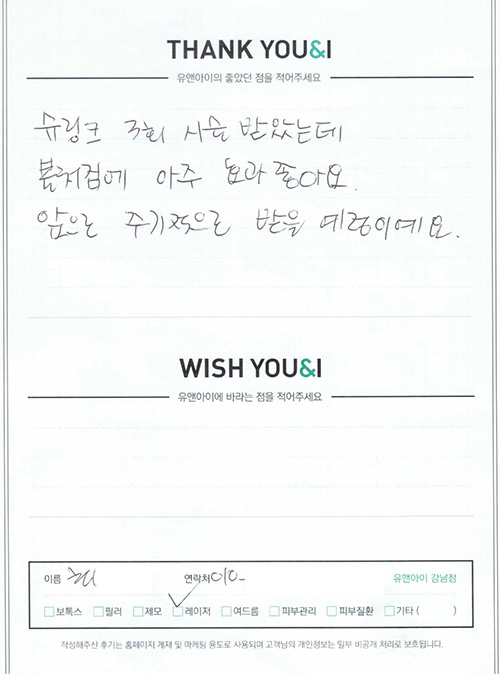 THANK YOU&I
유앤아이의 좋았던 점을 적어주세요
슈링크 3회 시술 받았는데
볼처짐에 아주 효과 좋아요.
앞으로 주기적으로 받을 예정이에요.
WISH YOU&I
유앤아이에 바라는 점을 적어주세요
이름 연락처 010- 유앤아이 강남점
□보톡스 □필러 □제모 ☑레이저 □여드름 □피부관리 □피부질환 □기타 ( )
작성해주신 후기는 홈페이지 게재 및 마케팅 용도로 사용되며 고객님의 개인정보는 일부 비공개 처리로 보호됩니다.